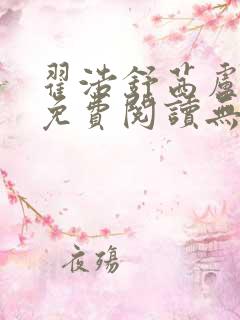 翟浩舒茜盧
免費閱讀無
夜殤